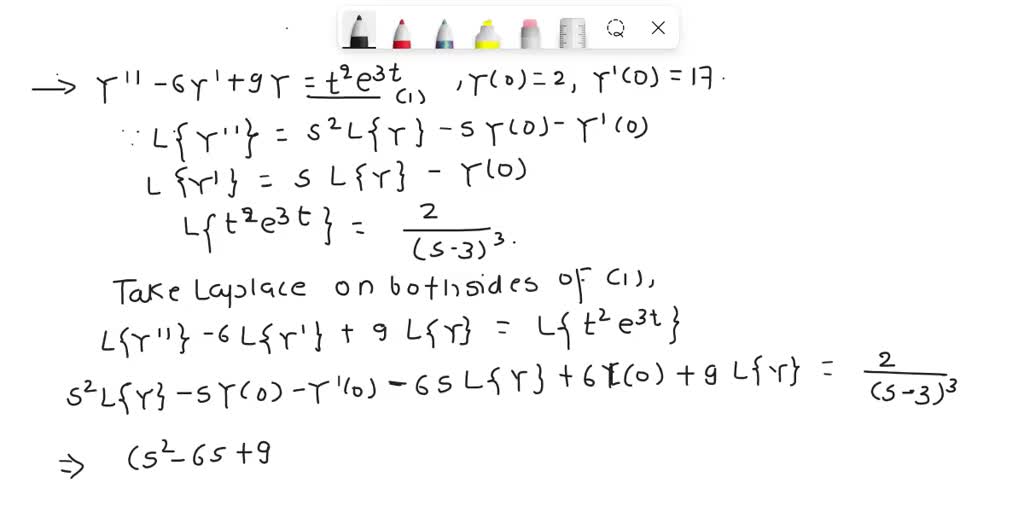 → Y'' - 6Y' + 9Y = t²e³ᵗ (1) , Y(0) = 2, Y'(0) = 17.
∵ L{Y''} = s²L{Y} - sY(0) - Y'(0)
L{Y'} = s L{Y} - Y(0)
L{t²e³ᵗ} = 2/(s-3)³.
Take Laplace on both sides of (1),
L{Y''} - 6L{Y'} + 9 L{Y} = L{t²e³ᵗ}
s²L{Y} - sY(0) - Y'(0) - 6sL{Y} + 6Y(0) + 9 L{Y} = 2/(s-3)³
⇒ (s² - 6s + 9